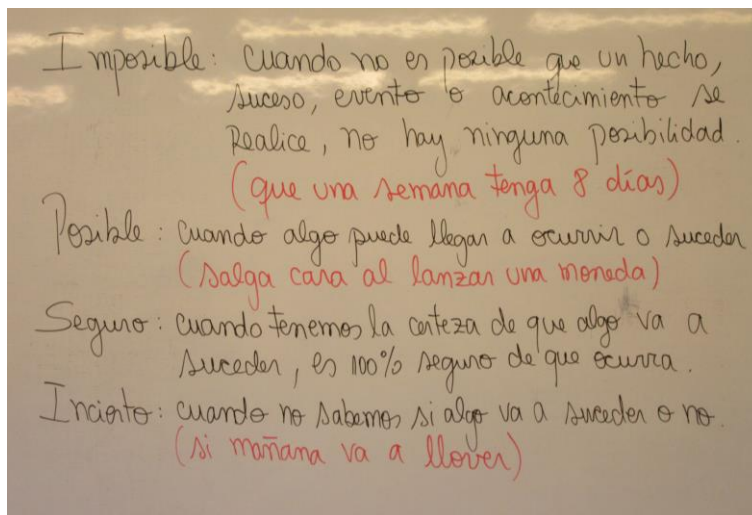 Imposible: Cuando no es posible que un hecho,
suceso, evento o acontecimiento se
Realice, no hay ninguna posibilidad.
(que una semana tenga 8 días)
Posible: Cuando algo puede llegar a ocurrir o suceder
(salga cara al lanzar una moneda)
Seguro: cuando tenemos la certeza de que algo va a
suceder, es 100% seguro de que ocurra.
Incierto: cuando no sabemos si algo va a suceder o no.
(si mañana va a llover)